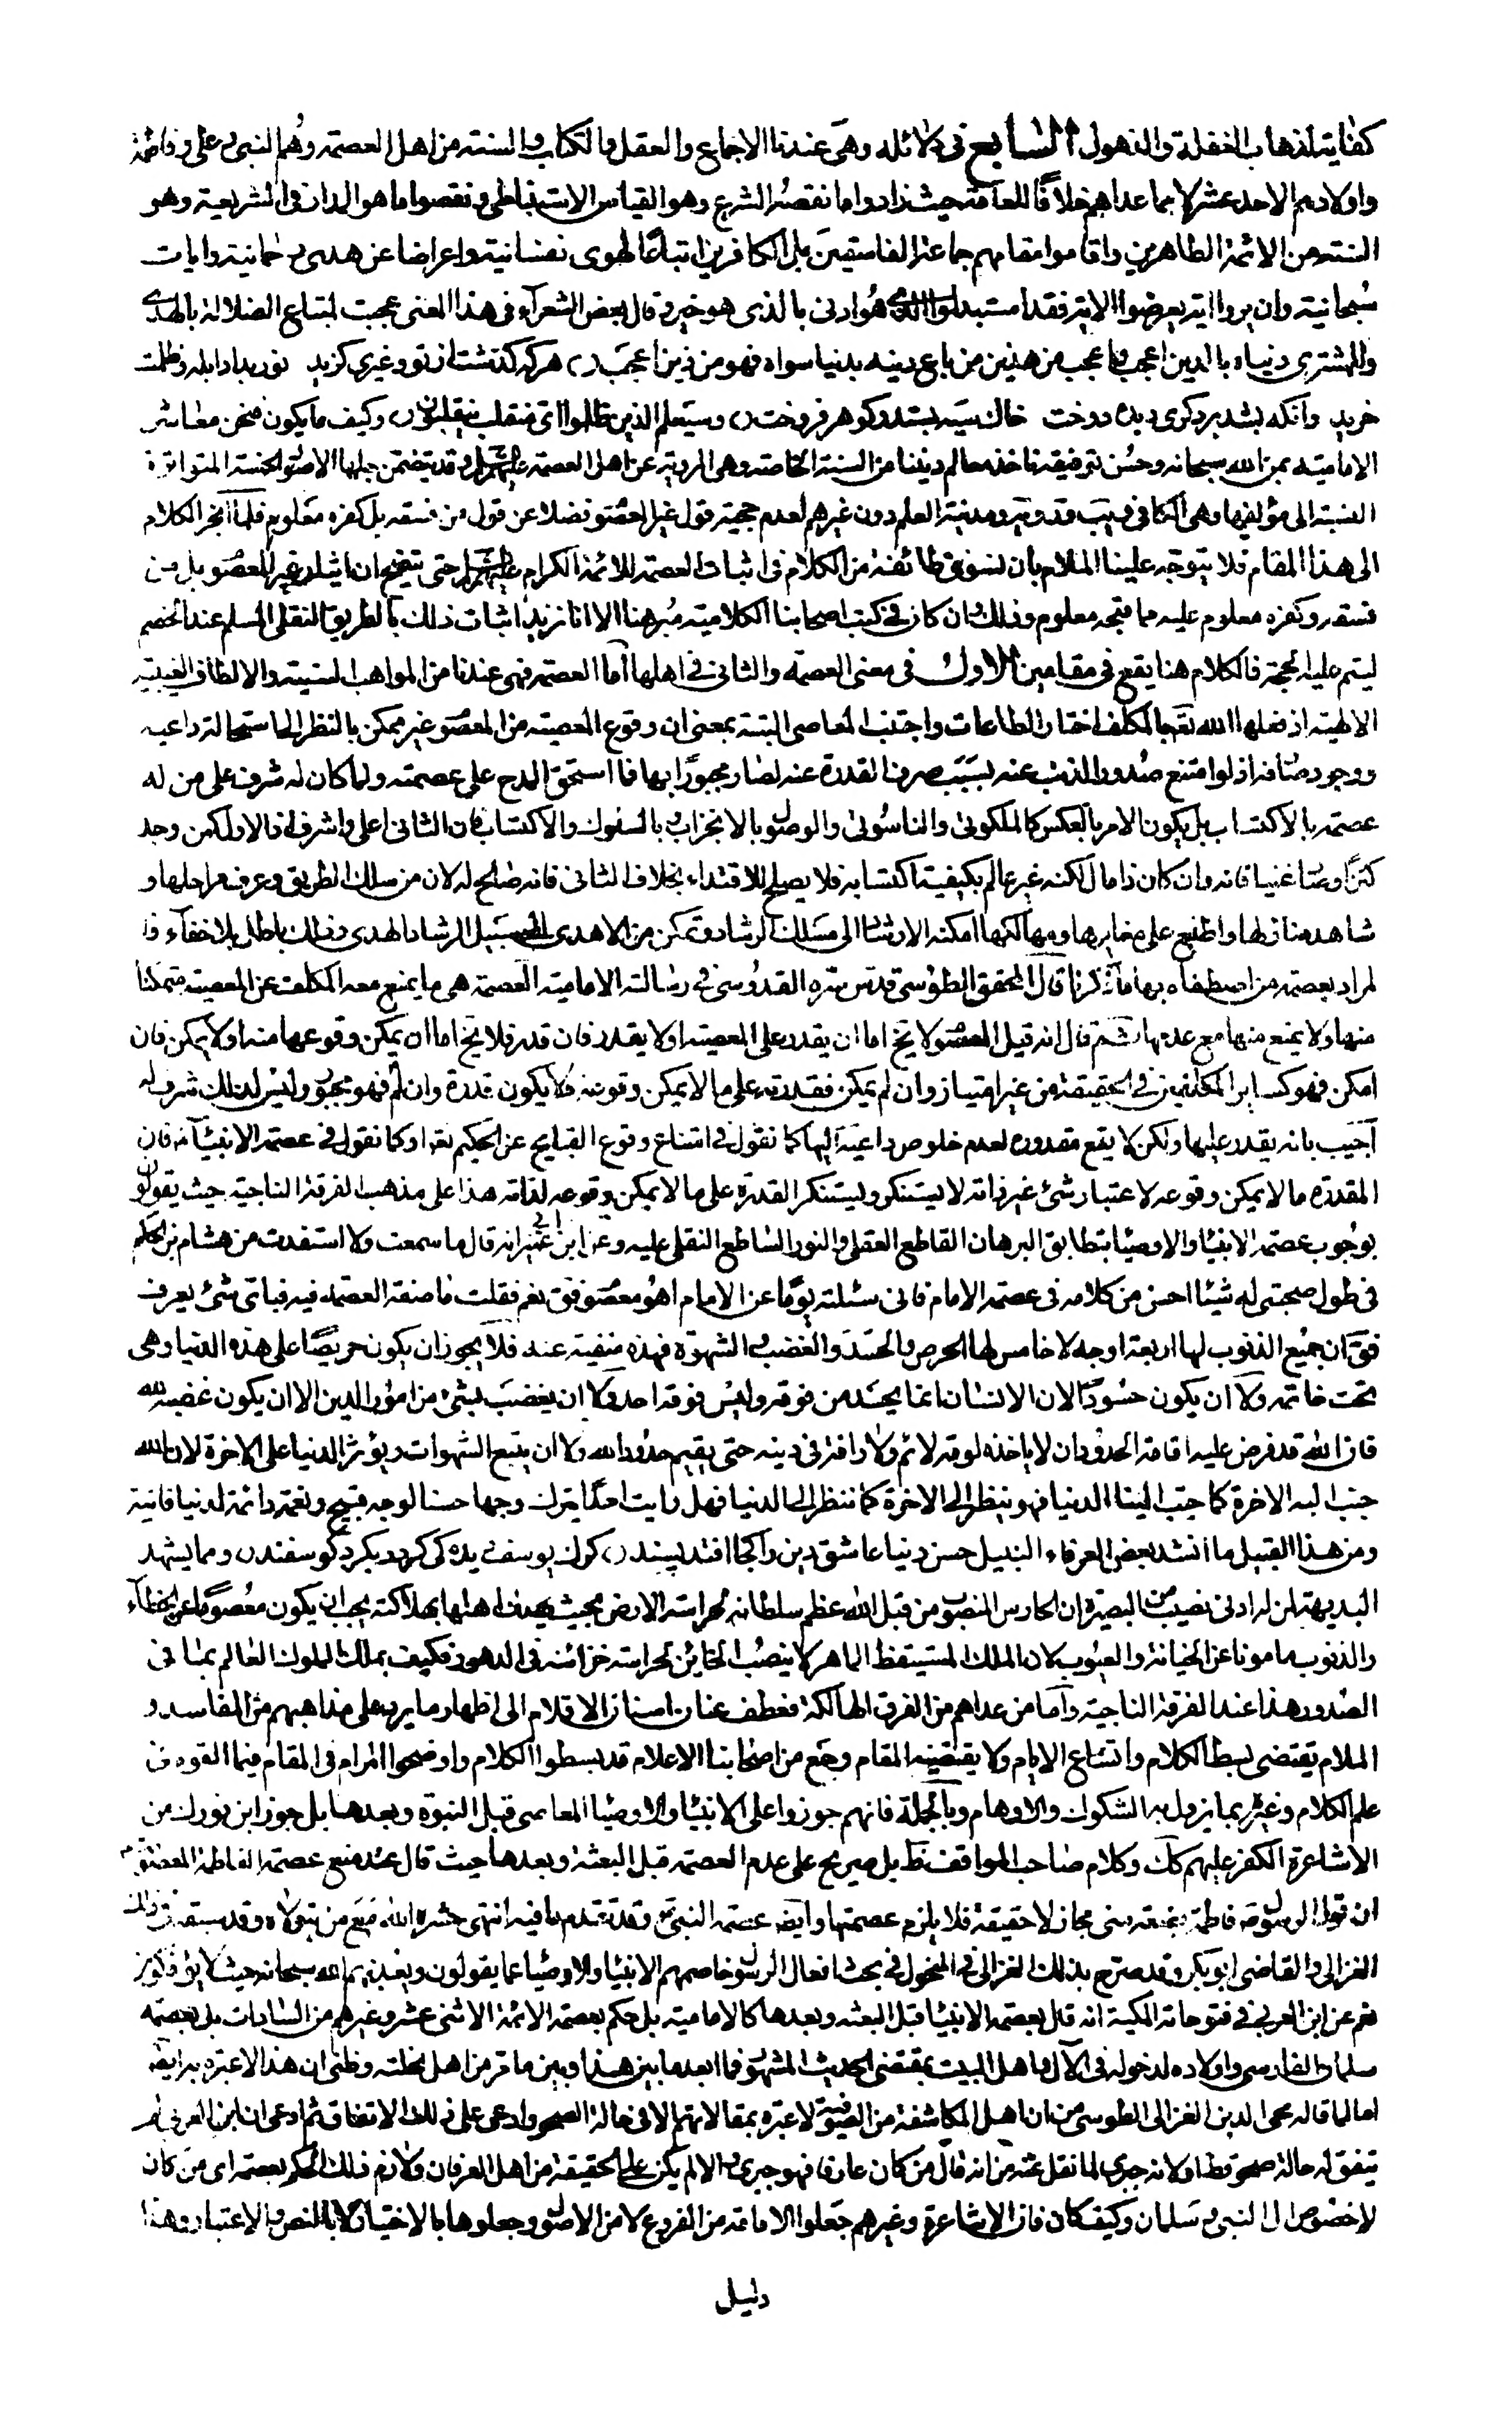 كفاية لذهاب الغفلة والذهول السابع في دلائله وهي عندنا الاجماع والعقل والكتاب والسنة من اهل العصمة وهم النبي وعلي وفاطمة
واولادهم الاحد عشر لا مما عداهم خلافًا للعامة حيث زادوا ما نقصه الشرع وهو القياس الاستنباطي ونقصوا ما هو المدار في الشريعة وهو
السنة من الائمة الطاهرين واقاموا مقامهم جماعة الفاسقين بل الكافرين اتباعًا لهوى نفسانية واعراضا عن هدى رحمانية وايات
سُبحانية وان يروا اية يعرضوا الاية فقد استبدلوا الذي هُو ادنى بالذي هو خير وقال بعض الشعرآء في هذا المعنى عجبت لمبتاع الضلالة بالهدى
وللمشتري دنياه بالدين اعجب واعجب من هذين من باع دينه بدنيا سواه فهو من ذين اعجب هركه گذشت از تو وغيري گزيد نور بداد ابله وظلمت
خريد وانكه بشد بر دگري ديده دوخت خاك سيه بستد وگوهر فروخت وسيعلم الذين ظلموا اي منقلب ينقلبون وكيف ما يكون فنحن معاشر
الامامية بمن الله سبحانه وحسن توفيقه ناخذ معالم ديننا من السنة الخاصة وهي المروية عن اهل العصمة عليهم السلام وقد يتضمن جلها الاصول الخمسة المتواترة
النسبة الى مؤلفيها وهي الكافي ويب وفقيه وصا ومدينة العلم دون غيرهم لعدم حجية قول غير المعصوم فضلا عن قول من فسقه بل كفره معلوم فلما انجر الكلام
الى هذا المقام فلا يتوجه علينا الملام بان نسوق طائفة من الكلام في اثبات العصمة للائمة الكرام عليهم السلام حتى يتضح ان ايثار غير المعصوم بل من
فسقه وكفره معلوم عليه مما قبحه معلوم وذلك وان كان في كتب اصحابنا الكلامية مُبرهنا الا انا نريد اثبات ذلك بالطريق النقلي المسلم عند الخصم
ليتم عليه الحجة فالكلام هنا يقع في مقامين الاول في معنى العصمة والثاني في اهلها اما العصمة فهي عندنا من المواهب السنية والالطاف الغيبية
الالهية اذ فعلها الله تعالى بالمكلف اختار الطاعات واجتنب المعاصي البتة بمعنى ان وقوع المعصية من المعصوم غير ممكن بالنظر الى استحالة داعيه
ووجود صارفه اذ لو امتنع صدور الذنب عنه بسبب صرف القدرة عنه لصار مجبورًا بها فما استحق المدح على عصمته ولما كان له شرف على من له
عصمة بالاكتساب بل يكون الامر بالعكس كالملكوتي والناسوتي والوصول بالانجذاب وبالسلوك والاكتساب فان الثاني اعلى واشرف اذ الاول كمن وجد
كنزًا وصار غنيا فانه وان كان ذا مال لكنه غير عالم بكيفية اكتسابه فلا يصلح للاقتداء بخلاف الثاني فانه صالح له لان من سلك الطريق وعرف مراحلها و
شاهد منازلها واطلع على مخابرها ومهالكها امكنه الارشاد الى مسلك الرشاد وتمكن من الاهداء الى سبيل الرشاد الهدى وذلك باطل بلا خفآء وا
لمراد بعصمة من اصطفاه بها ما ذكرنا قال المحقق الطوسي قدس سره القدوسي في رسالته الامامية العصمة هي ما يمنع معه المكلف عن المعصية متمكنًا
منها ولا يمنع منها مع عدمها ثم قال انه قيل المعصوم لا يخ اما ان يقدر على المعصية او لا يقدر فان قدر فلا يخ اما ان يمكن وقوعها منه او لا يمكن فان
امكن فهو كساير المكلفين في الحقيقة من غير امتياز وان لم يمكن فقدرته على ما لا يمكن وقوعه لا يكون قدرة وان لم فهو مجبور وليس لذلك شرف له
اجيب بانه يقدر عليها ولكن لا يقع مقدوره لعدم خلوص داعيته اليها كما نقول في امتناع وقوع القبايح عن الحكيم تعالى او كما نقول في عصمة الانبياء فان
المقدرة ما لا يمكن وقوعه لاعتبار شئ غير ذاته لا يستنكر ويستنكر القدرة على ما لا يمكن وقوعه لذاته هذا على مذهب الفرقة الناجية حيث يقولون
بوجوب عصمة الانبياء والاوصياء بتطابق البرهان القاطع العقلي والنور الساطع النقلي عليه وعن ابن ابي عمير انه قال ما سمعت ولا استفدت من هشام بن الحكم
في طول صحبتي له شيئا احسن من كلامه في عصمة الامام فاني سئلته يومًا عن الامام اهو معصوم فق نعم فقلت ما صفة العصمة فيه فباي شئ يعرف
فق ان جميع الذنوب لها اربعة اوجه لا خامس لها الحرص والحسد والغضب والشهوة فهذه منفية عنه فلا يجوز ان يكون حريصًا على هذه الدنيا وهي
تحت خاتمه ولا ان يكون حسُودًا لان الانسان انما يحسد من فوقه وليس فوقه احد ولا ان يغضب لشئ من امور الدين الا ان يكون غضبه لله
فان الله قد فرض عليه اقامة الحدود وان لا ياخذه لومة لائم ولا رافة في دينه حتى يقيم حدود الله ولا ان يتبع الشهوات ويؤثر الدنيا على الاخرة لان الله
حبب اليه الاخرة كما حبب الينا الدنيا فهو ينظر الى الاخرة كما ننظر الى الدنيا فهل رايت احدًا يترك وجها حسنا لوجه قبيح ونعمة دائمة لدنيا فانية
ومن هذا القبيل ما انشد بعض العرفاء النبيل حسن دنيا عاشق دين را كجا افتد پسند گرگ يوسف ديده كي گردد بگرد گوسفند ومما يشهد
البديهة لمن له ادنى نصيب من البصيرة ان الحارس المنصوب من قبل الله عظم سلطانه لحراسة الارض بحيث يهلك اهلها بهلاكته يجب ان يكون معصومًا عن الخطاء
والذنوب مامونا عن الخيانة والعيوب لان الملك المستيقظ الماهر لا ينصب الخائن لحراسة خزائنه في الدهور فكيف بملك الملوك العالم بما في
الصدور هذا عند الفرقة الناجية واما من عداهم من الفرق الهالكة فعطف عنان اسنان الاقلام الى اظهار ما يرد على مذاهبهم من المفاسد و
الملام يقتضي بسط الكلام واتساع الايام ولا يقتضيه المقام وجمع من اصحابنا الاعلام قد بسطوا الكلام واوضحوا المرام في المقام فيما القوه من
علم الكلام وغيره بما يزول به الشكوك والاوهام وبالجملة فانهم جوزوا على الانبياء والاوصياء المعاصي قبل النبوة وبعدها بل جوز ابن فورك من
الاشاعرة الكفر عليهم كك وكلام صاحب المواقف نظ بل صريح على عدم العصمة قبل البعثة وبعدها حيث قال عند منع عصمة الفاطمة المعصومة
ان قول الرسول ص فاطمة بضعة مني مجاز لا حقيقة فلا يلزم عصمتها وايض عصمة النبي ص وقد تقدم ما فيه انتهى حشره الله مع من يتولاه وقد سبقه في ذلك
الغزالي والقاضي ابوبكر وقد صرح بذلك الغزالي في المنخول في بحث افعال الرسول خاصمهم الانبياء والاوصياء عما يقولون ويعذبهم الله سبحانه حيث لا يؤفكون
نعم عن ابن العربي في فتوحاته المكية انه قال بعصمة الانبياء قبل البعثة وبعدها كالامامية بل حكم بعصمة الائمة الاثنى عشر وغيرهم من السادات بل بعصمة
سلمان الفارسي واولاده لدخوله في الآل واهل البيت بمقتضى الحديث المشهور فما ابعد ما بين هذا وبين ما مر من اهل نحلته وظني ان هذا لا عبرة به ايضا
اما لما قاله محي الدين الغزالي الطوسي من ان اهل المكاشفة من الصوفية لا عبرة بمقالاتهم الا في حالة الصحو وادعى على ذلك الاتفاق ثم ادعى ان ابن العربي لم
يتفق له حالة صحو قط او لانه جبري لما نقل عنه من انه قال من كان عارفا فهو جبري والا لم يكن على الحقيقة من اهل العرفان ولازم ذلك الحكم بعصمة اي من كان
لا خصوص ال النبي و سلمان وكيف كان فان الاشاعرة وغيرهم جعلوا الامامة من الفروع لا من الاصول وجعلوها بالاختيار لا بالنص والاعتبار وهذا
دليل